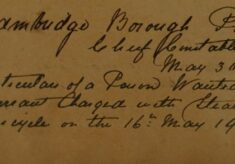 ambridge Borough P
Chief Constabl
May 3
ticulars of a Person Wanted
arrant Charged with Stea
icycle on the 16th May 19